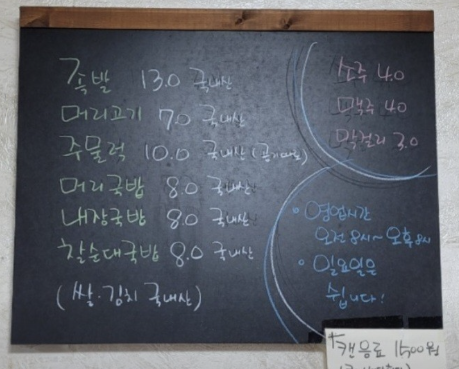 족발 13.0 국내산
머리고기 7.0 국내산
주물럭 10.0 국내산 (공기별도)
머리국밥 8.0 국내산
내장국밥 8.0 국내산
찰순대국밥 8.0 국내산
(쌀·김치 국내산)
소주 4.0
맥주 4.0
막걸리 3.0
• 영업시간
오전 8시~오후 8시
• 일요일은
쉽니다!
+캔음료 1500원